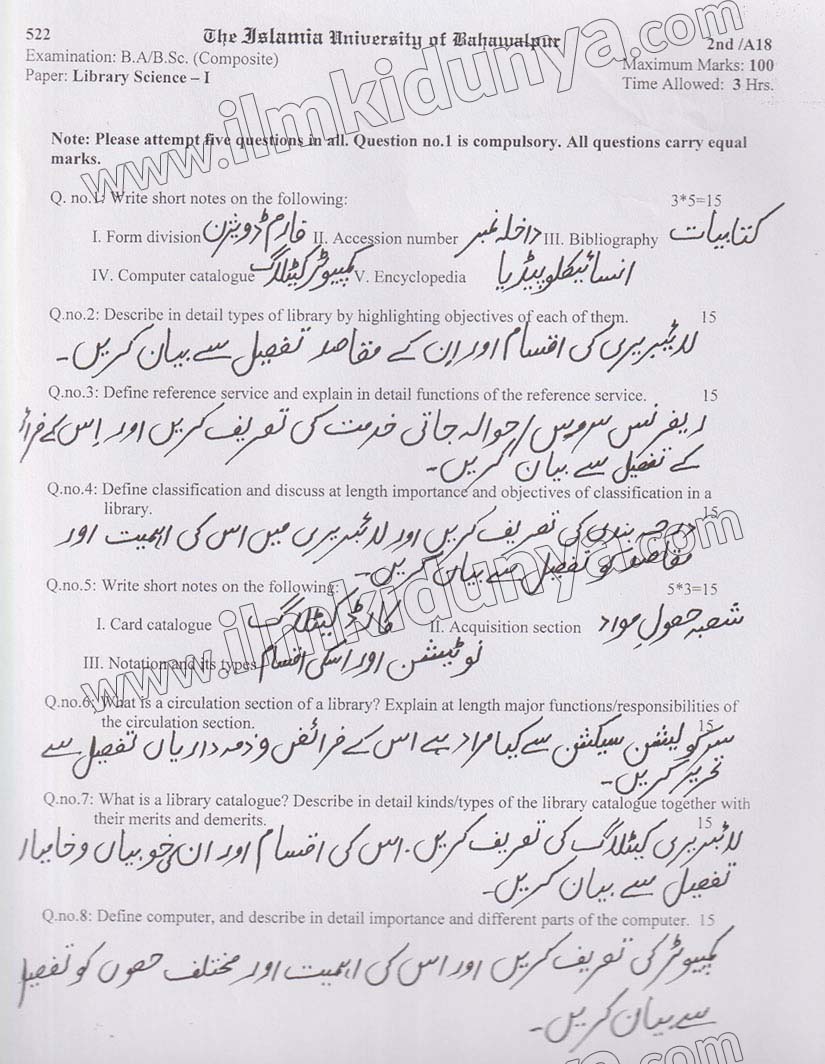 522
The Islamia University of Bahawalpur
2nd /A18
Examination: B.A/B.Sc. (Composite)
Maximum Marks: 100
Paper: Library Science – I
Time Allowed: 3 Hrs.
Note: Please attempt five questions in all. Question no.1 is compulsory. All questions carry equal
marks.
Q. no.1: Write short notes on the following: 3*5=15
I. Form division فارم ڈویژن II. Accession number داخلہ نمبر III. Bibliography کتابیات
IV. Computer catalogue کمپیوٹر کیٹلاگ V. Encyclopedia انسائیکلوپیڈیا
Q.no.2: Describe in detail types of library by highlighting objectives of each of them. 15
لائبریری کی اقسام اور ان کے مقاصد تفصیل سے بیان کریں۔
Q.no.3: Define reference service and explain in detail functions of the reference service. 15
ریفرنس سروس / حوالہ جاتی خدمت کی تعریف کریں اور اِس کے
کے تفصیل سے بیان کریں۔
Q.no.4: Define classification and discuss at length importance and objectives of classification in a
library. 15
درجہ بندی کی تعریف کریں اور لائبریری میں اس کی اہمیت اور
مقاصد کو تفصیل سے بیان کریں۔
Q.no.5: Write short notes on the following: 5*3=15
I. Card catalogue کارڈ کیٹلاگ II. Acquisition section شعبہ حصولِ مواد
III. Notation and its types نوٹیشن اور اسکی اقسام
Q.no.6: What is a circulation section of a library? Explain at length major functions/responsibilities of
the circulation section. 15
سرکولیشن سیکشن سے کیا مراد ہے اس کے فرائض و ذمہ داریاں تفصیل سے
تحریر کریں۔
Q.no.7: What is a library catalogue? Describe in detail kinds/types of the library catalogue together with
their merits and demerits. 15
لائبریری کیٹلاگ کی تعریف کریں۔ اس کی اقسام اور ان کی خوبیاں و
تفصیل سے بیان کریں۔
Q.no.8: Define computer, and describe in detail importance and different parts of the computer. 15
کمپیوٹر کی تعریف کریں اور اس کی اہمیت اور مختلف حصوں کو تفصیل
سے بیان کریں۔
www.ilmkidunya.com
www.ilmkidunya.com
www.ilmkidunya.com